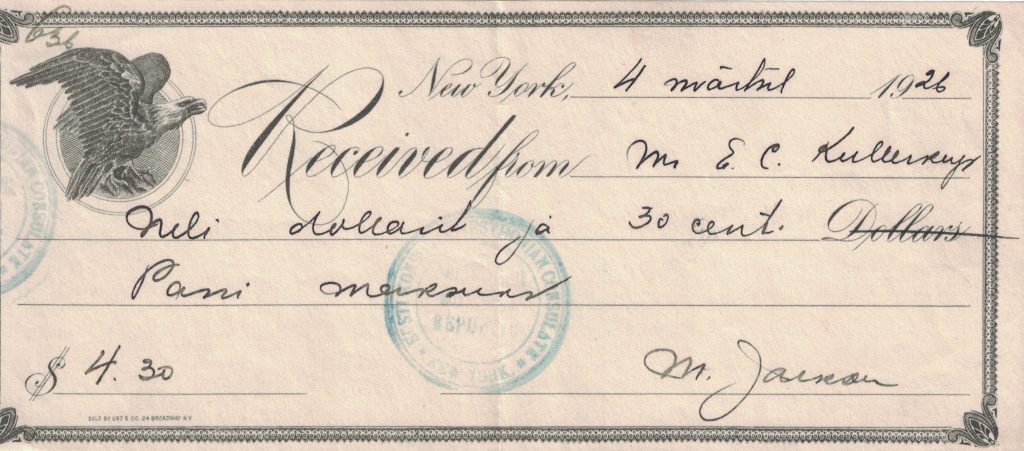 636
New York, 4 märtsil 1926
Received from Mr E. C. Kullerkup
Neli dollarit ja 30 cent. Dollars
Passi maksuks
$ 4.30
M.
ESTONIAN CONSULATE
NEW YORK
SOLD BY UNZ & CO. 24 BROADWAY N.Y.